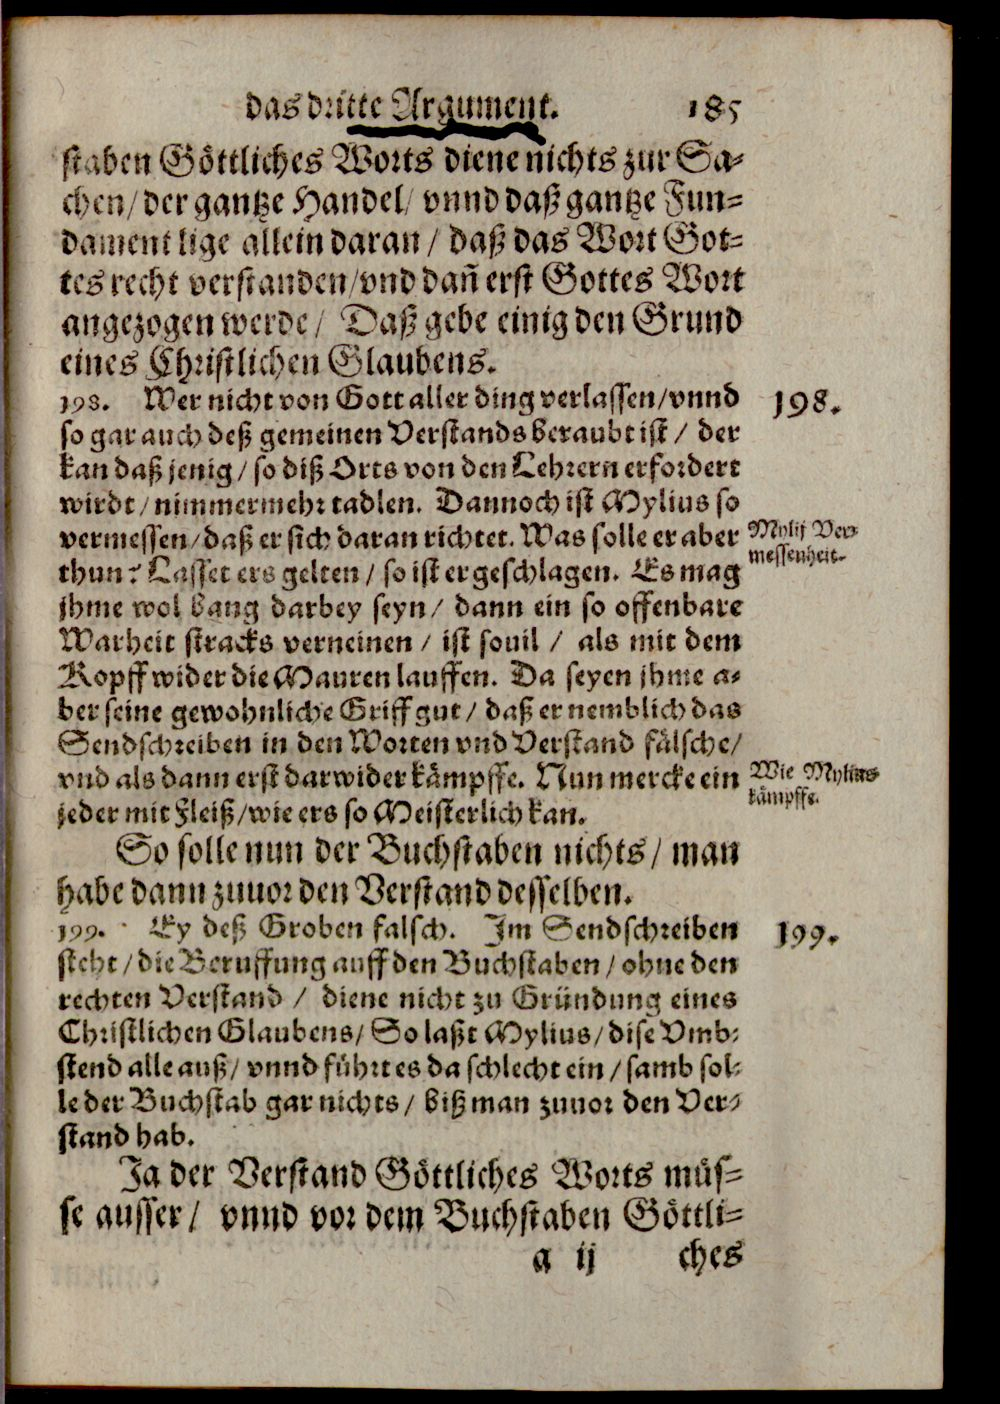 das dritte Argument. 185
staben Göttliches Worts diene nichts zur Sa-
chen/ der gantze Handel/ vnnd daß gantze Fun-
dament lige allein daran / daß das Wort Got-
tes recht verstanden/vnd dañ erst Gottes Wort
angezogen werde / Daß gebe einig den Grund
eines Christlichen Glaubens.
198. Wer nicht von Gott aller ding verlassen/vnnd 198.
so gar auch deß gemeinen Verstands beraubt ist / der
kan daß jenig / so diß Orts von den Lehrern erfordert
wirdt / nimmermehr tadlen. Dannoch ist Mylius so
vermessen/daß er sich daran richtet. Was solle er aber Mylij Ver-
thun? Lasset ers gelten / so ist er geschlagen. Es mag messenheit.
jhme wol bang darbey seyn / dann ein so offenbare
Warheit stracks verneinen / ist souil / als mit dem
Kopff wider die Mauren lauffen. Da seyen jhme a-
ber seine gewohnliche Griff gut / daß er nemblich das
Sendschreiben in den Worten vnd Verstand fälsche/
vnd als dann erst darwider kämpffe. Nun mercke ein Wie Mylius
jeder mit Fleiß/wie ers so Meisterlich kan. kämpffe.
So solle nun der Buchstaben nichts / man
habe dann zuuor den Verstand desselben.
199. Ey deß Groben falsch. Im Sendschreiben 199.
steht / die Beruffung auff den Buchstaben / ohne den
rechten Verstand / diene nicht zu Gründung eines
Christlichen Glaubens/ So laßt Mylius/ dise Vmb-
stend alle auß/ vnnd führt es da schlecht ein / samb sol-
le der Buchstab gar nichts / biß man zuuor den Ver-
stand hab.
Ja der Verstand Göttliches Worts müs-
se ausser / vnnd vor dem Buchstaben Göttli-
a ij ches